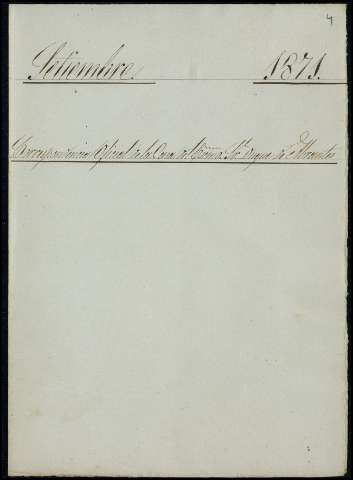 4
Setiembre 1871.
Correspondencia Oficial de la Casa del Excmo. Sr. Duque de Abrantes